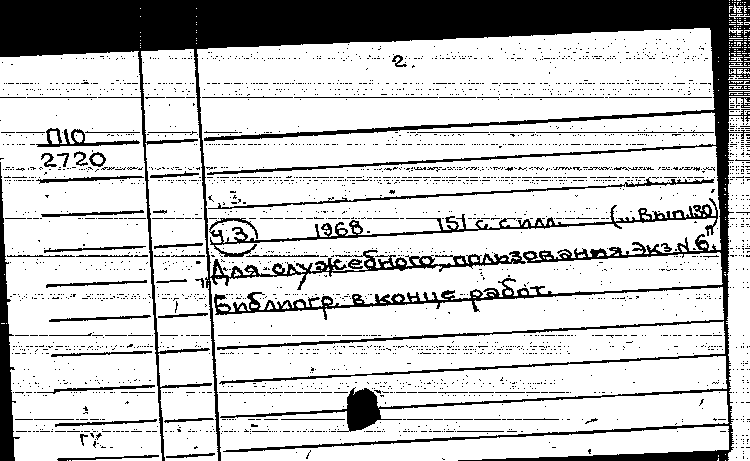 2
П10
2720
Ч.3. 1968. 151 с. с илл. (... Вып.130)
Для служебного пользования. Экз.N.6.
"Библиогр. в конце работ.
ГУ